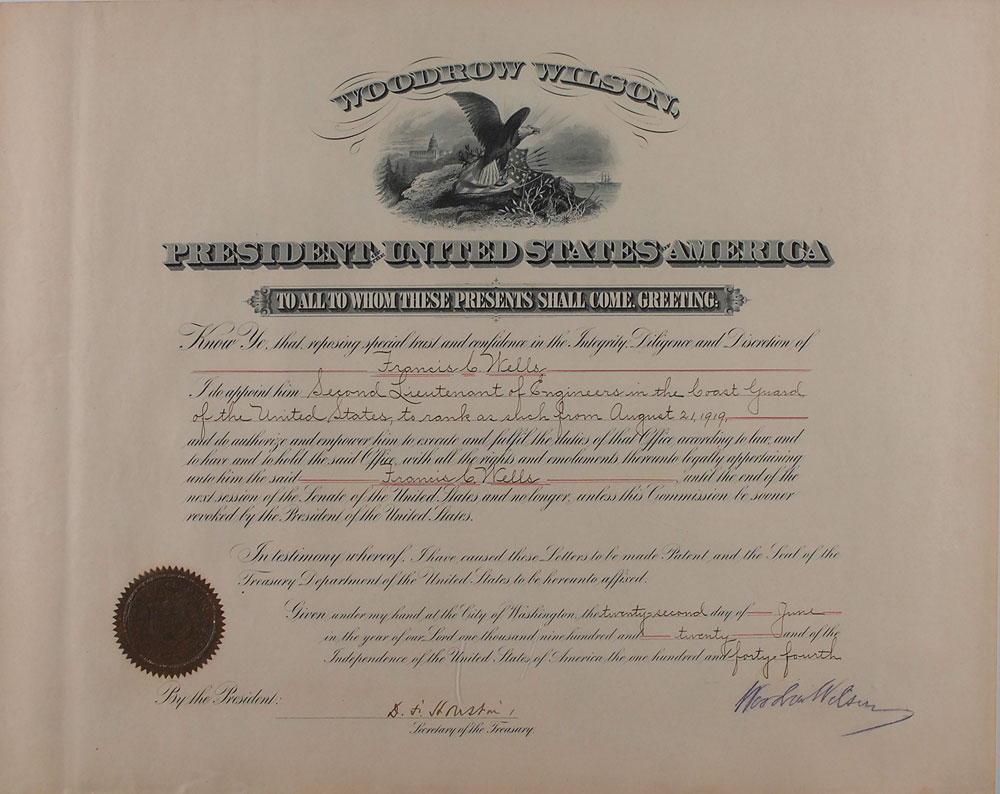 WOODROW WILSON,
PRESIDENT OF THE UNITED STATES OF AMERICA
TO ALL TO WHOM THESE PRESENTS SHALL COME, GREETING:
Know Ye, that, reposing special trust and confidence in the Integrity, Diligence and Discretion of
Francis C. Wells
I do appoint him Second Lieutenant of Engineers in the Coast Guard
of the United States, to rank as such from August 21, 1919,
and do authorize and empower him to execute and fulfil the duties of that Office according to law, and
to have and to hold the said Office, with all the rights and emoluments thereunto legally appertaining
unto him the said Francis C. Wells, until the end of the
next session of the Senate of the United States and no longer, unless this Commission be sooner
revoked by the President of the United States.
In testimony whereof, I have caused these Letters to be made Patent and the Seal of the
Treasury Department of the United States to be hereunto affixed.
Given under my hand, at the City of Washington, the twenty-second day of June
in the year of our Lord one thousand nine hundred and twenty and of the
Independence of the United States of America the one hundred and forty-fourth
By the President:
Woodrow Wilson
D. F. Houston,
Secretary of the Treasury.